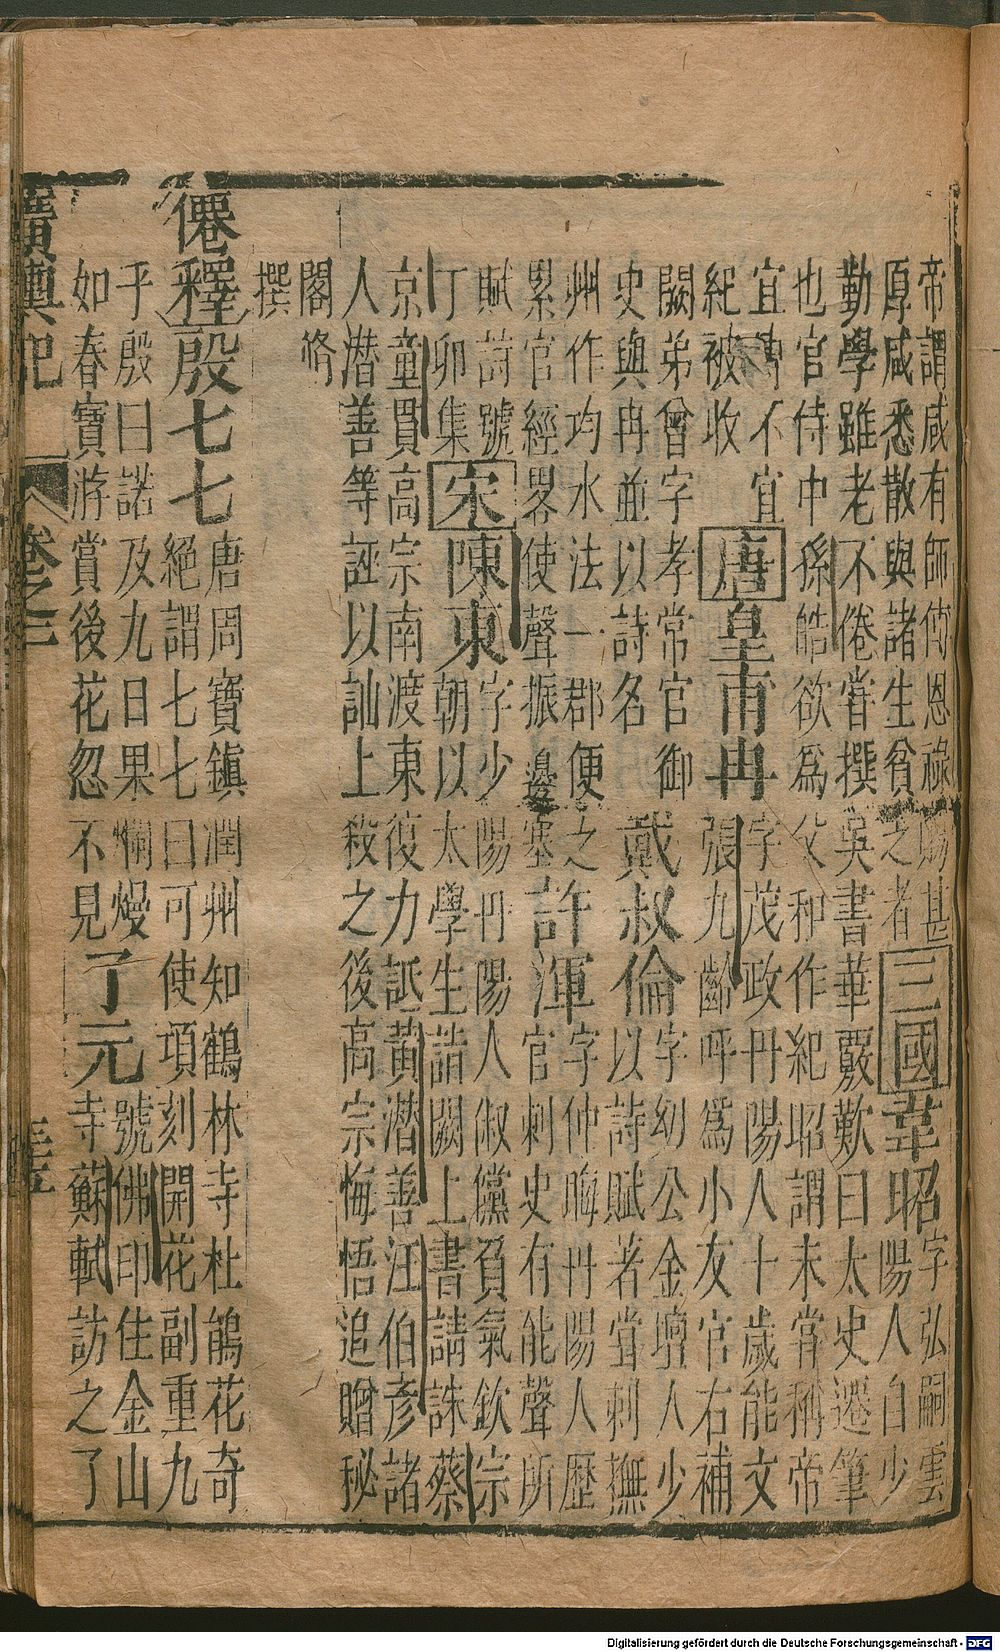 帝謂咸有師傅恩祿賜甚
原咸悉散與諸生貧之者
三國韋昭
字弘嗣雲
陽人自少
勤學雖老不倦嘗撰吳書華覈歎曰太史遷筆
也官侍中孫皓欲爲父和作紀昭謂未嘗稱帝
宜傳不宜
紀被收
唐皇甫冉
字茂政丹陽人十歲能文
張九齡呼爲小友官右補
闕弟曾字孝常官御
史與冉並以詩名
戴叔倫
字幼公金壇人少
以詩賦著嘗刺撫
州作均水法一郡便之
累官經畧使聲振邊塞
許渾
字仲晦丹陽人歷
官刺史有能聲所
賦詩號
丁卯集
宋陳東
字少陽丹陽人俶儻負氣欽宗
朝以太學生詣闕上書請誅蔡
京童貫高宗南渡東復力詆黃潛善汪伯彥諸
人潛善等誣以訕上殺之後高宗悔悟追贈秘
閣修
撰
僊釋殷七七
唐周寶鎮潤州知鶴林寺杜鵑花奇
絕謂七七曰可使頃刻開花副重九
乎殷曰諾及九日果爛熳
如春寶游賞後花忽不見
了元
號佛印住金山
寺蘇軾訪之了
廣輿記
卷之二
Digitalisierung gefördert durch die Deutsche Forschungsgemeinschaft - DFG